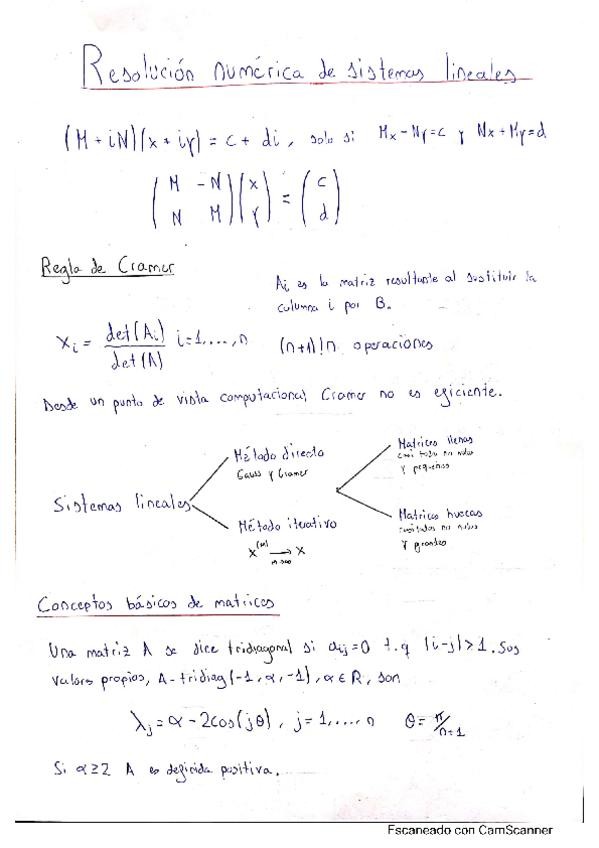 Resolución numérica de sistemas lineales
(M + iN)(x + iy) = c + di, solo si Mx - Ny = c y Nx + My = d
( M -N ) ( x ) = ( c )
( N M ) ( y ) ( d )
Regla de Cramer
Ai es la matriz resultante al sustituir la
columna i por B.
xi = det(Ai) / det(A) i=1,...,n (n+1)!n operaciones
Desde un punto de vista computacional, Cramer no es eficiente.
Sistemas lineales
Método directo
Gauss y Cramer
Método iterativo
x^(m) → x
m→∞
Matrices llenas
casi todo no nulos
y pequeños
Matrices huecas
no nulos
y grandes
Conceptos básicos de matrices
Una matriz A se dice tridiagonal si aij=0 t.q |i-j|>1. Sus
valores propios, A-tridiag(-1, α, -1), α∈R, son
λj = α - 2cos(jθ), j=1,...,n θ= π/n+1
Si α≥2 A es definida positiva.
Escaneado con CamScanner